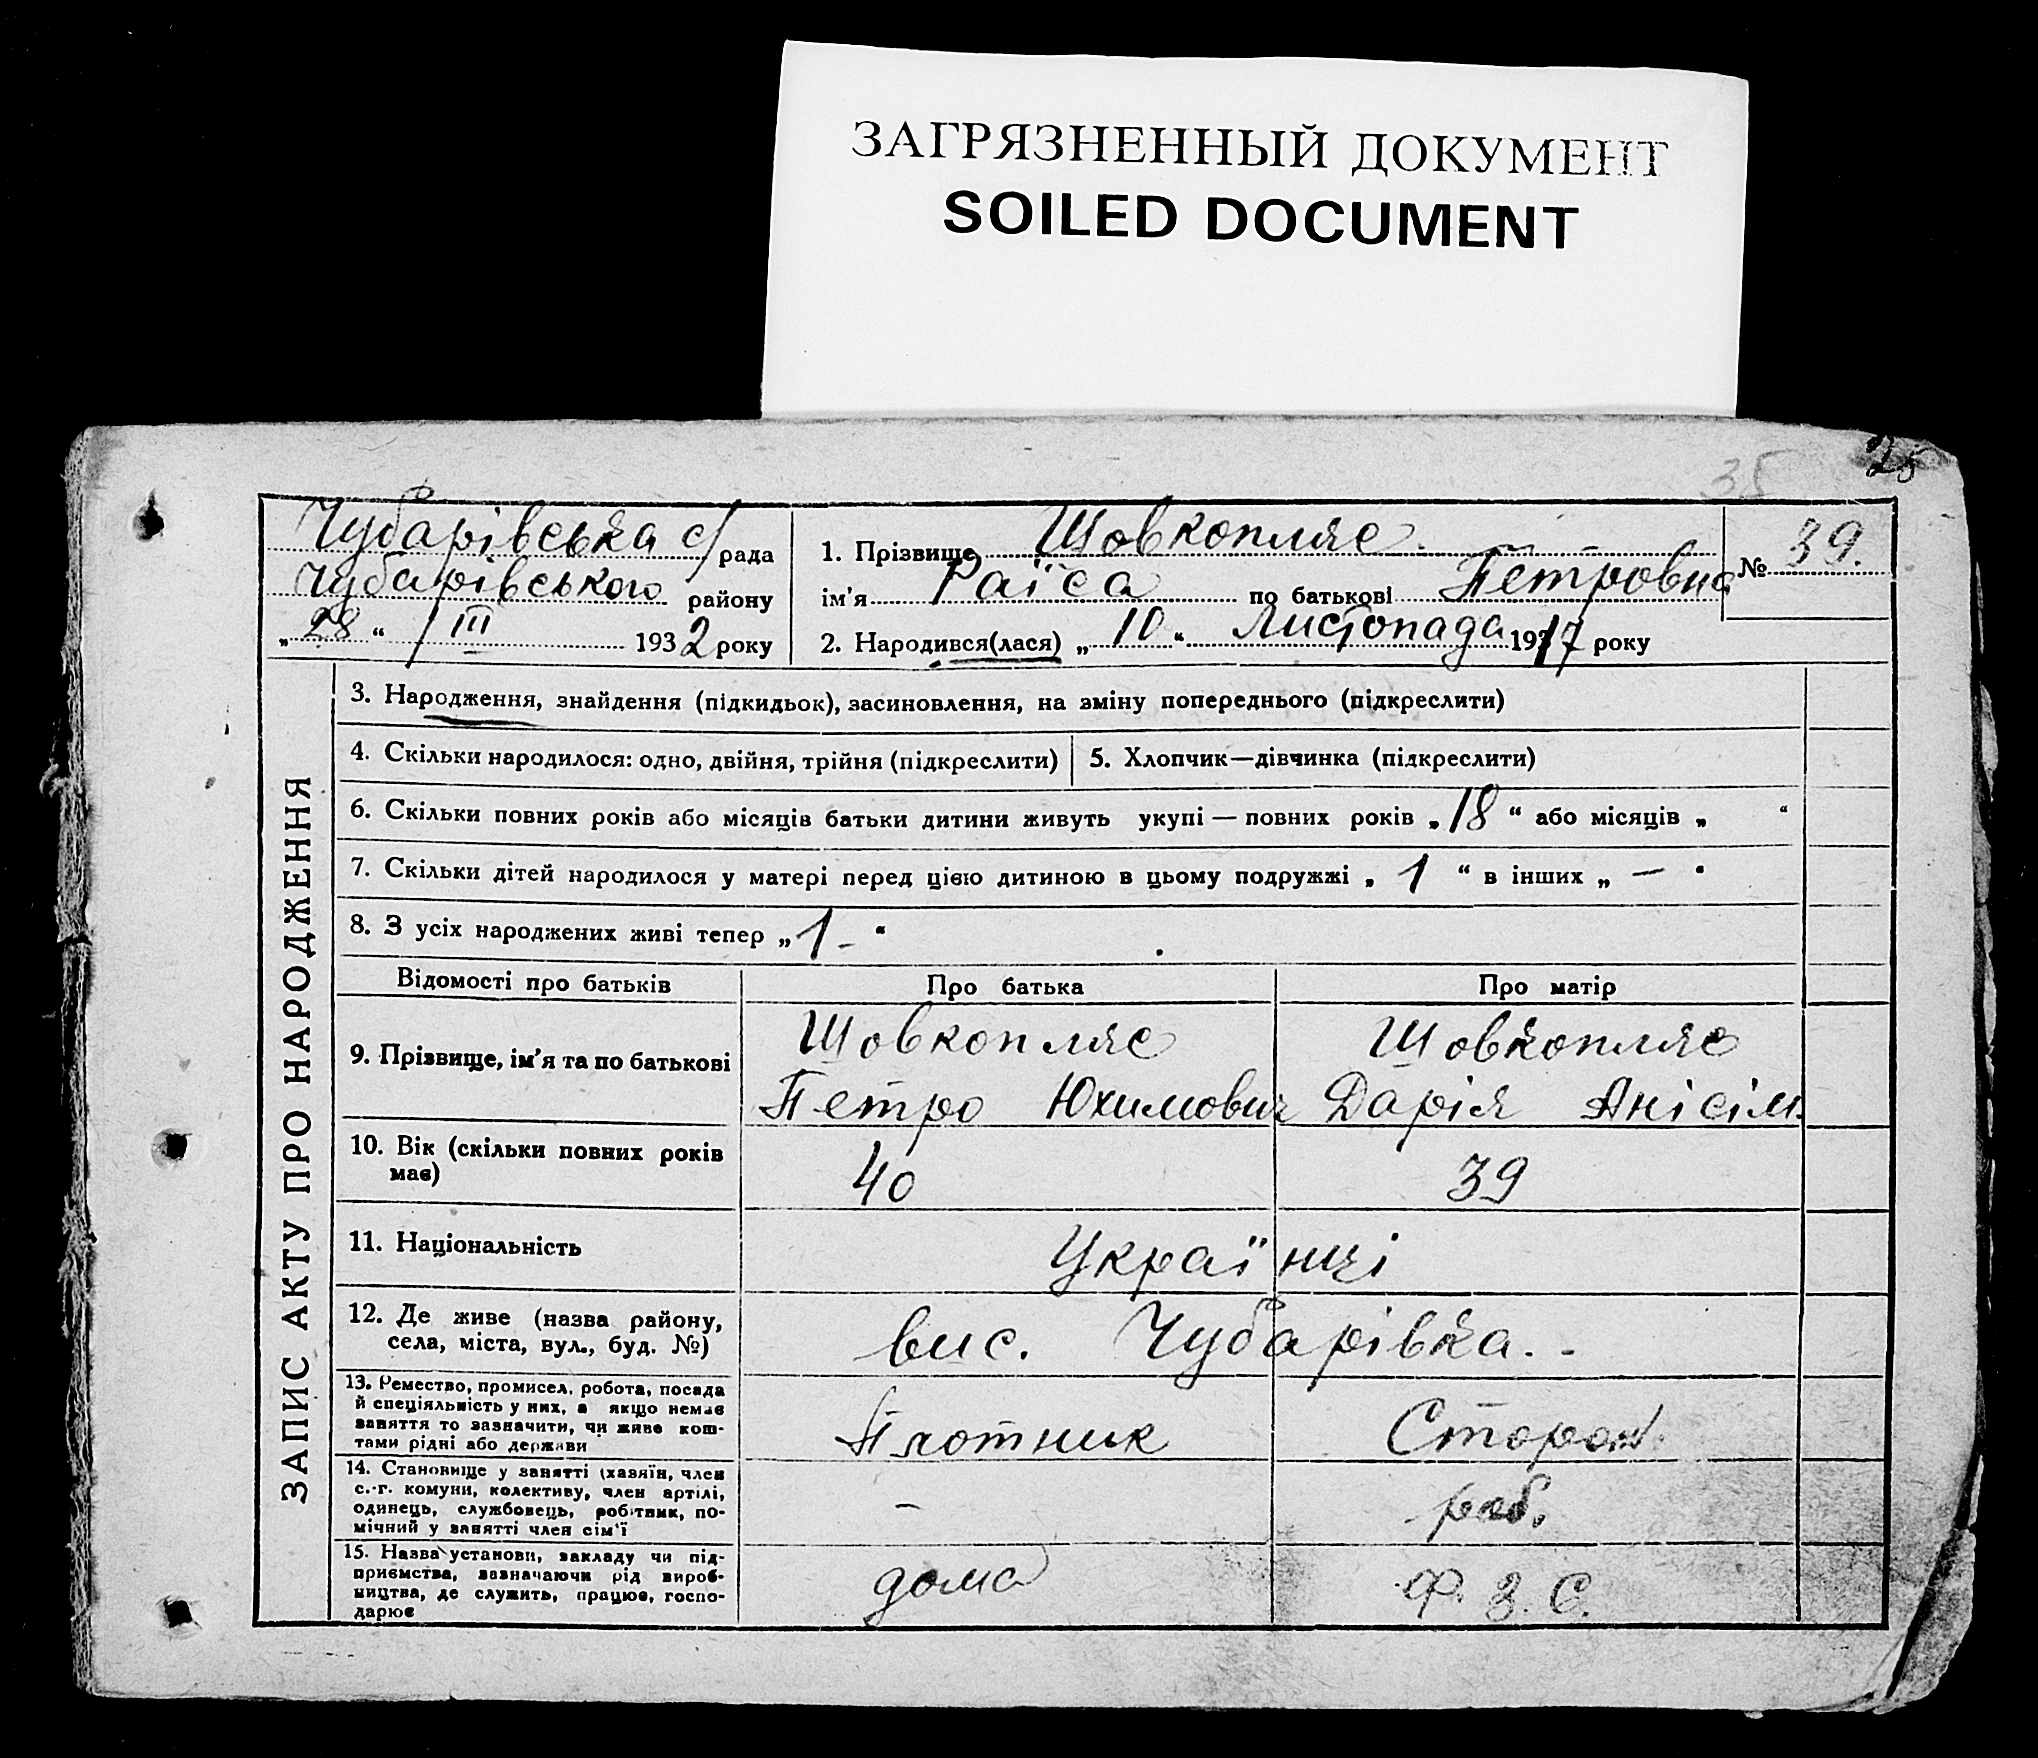 ЗАГРЯЗНЕННЫЙ ДОКУМЕНТ
SOILED DOCUMENT
35
25
Чубарівська с/рада
Чубарівського району
„ 28 “ / III 1932 року
1. Прізвище Шовкопляс
ім'я Раїса по батькові Петровна
№ 39.
2. Народився(лася) „ 10 “ Листопада 1917 року
ЗАПИС АКТУ ПРО НАРОДЖЕННЯ
3. Народження, знайдення (підкидьок), засиновлення, на зміну попереднього (підкреслити)
4. Скільки народилося: одно, двійня, трійня (підкреслити)
5. Хлопчик—дівчинка (підкреслити)
6. Скільки повних років або місяців батьки дитини живуть укупі — повних років „ 18 “ або місяців „ “
7. Скільки дітей народилося у матері перед цією дитиною в цьому подружжі „ 1 “ в інших „ — “
8. З усіх народжених живі тепер „ 1 - “
Відомості про батьків
Про батька
Про матір
9. Прізвище, ім'я та по батькові
Шовкопляс
Петро Юхимович
Шовкопляс
Дарія Анісім.
10. Вік (скільки повних років
має)
40
39
11. Національність
Українці
12. Де живе (назва району,
села, міста, вул., буд. №)
вис. Чубарівка. -
13. Ремество, промисел, робота, посада
й спеціяльність у них, а якщо немає
заняття то зазначити, чи живе кош-
тами рідні або держави
Плотник
14. Становище у занятті (хазяїн, член
с.-г. комуни, колективу, член артілі,
одинець, службовець, робітник, по-
мічний у занятті член сім'ї
-
раб.
15. Назва установи, закладу чи під-
приємства, зазначаючи рід вироб-
ництва, де служить, працює, госпо-
дарює
дома
Ф. З. С.